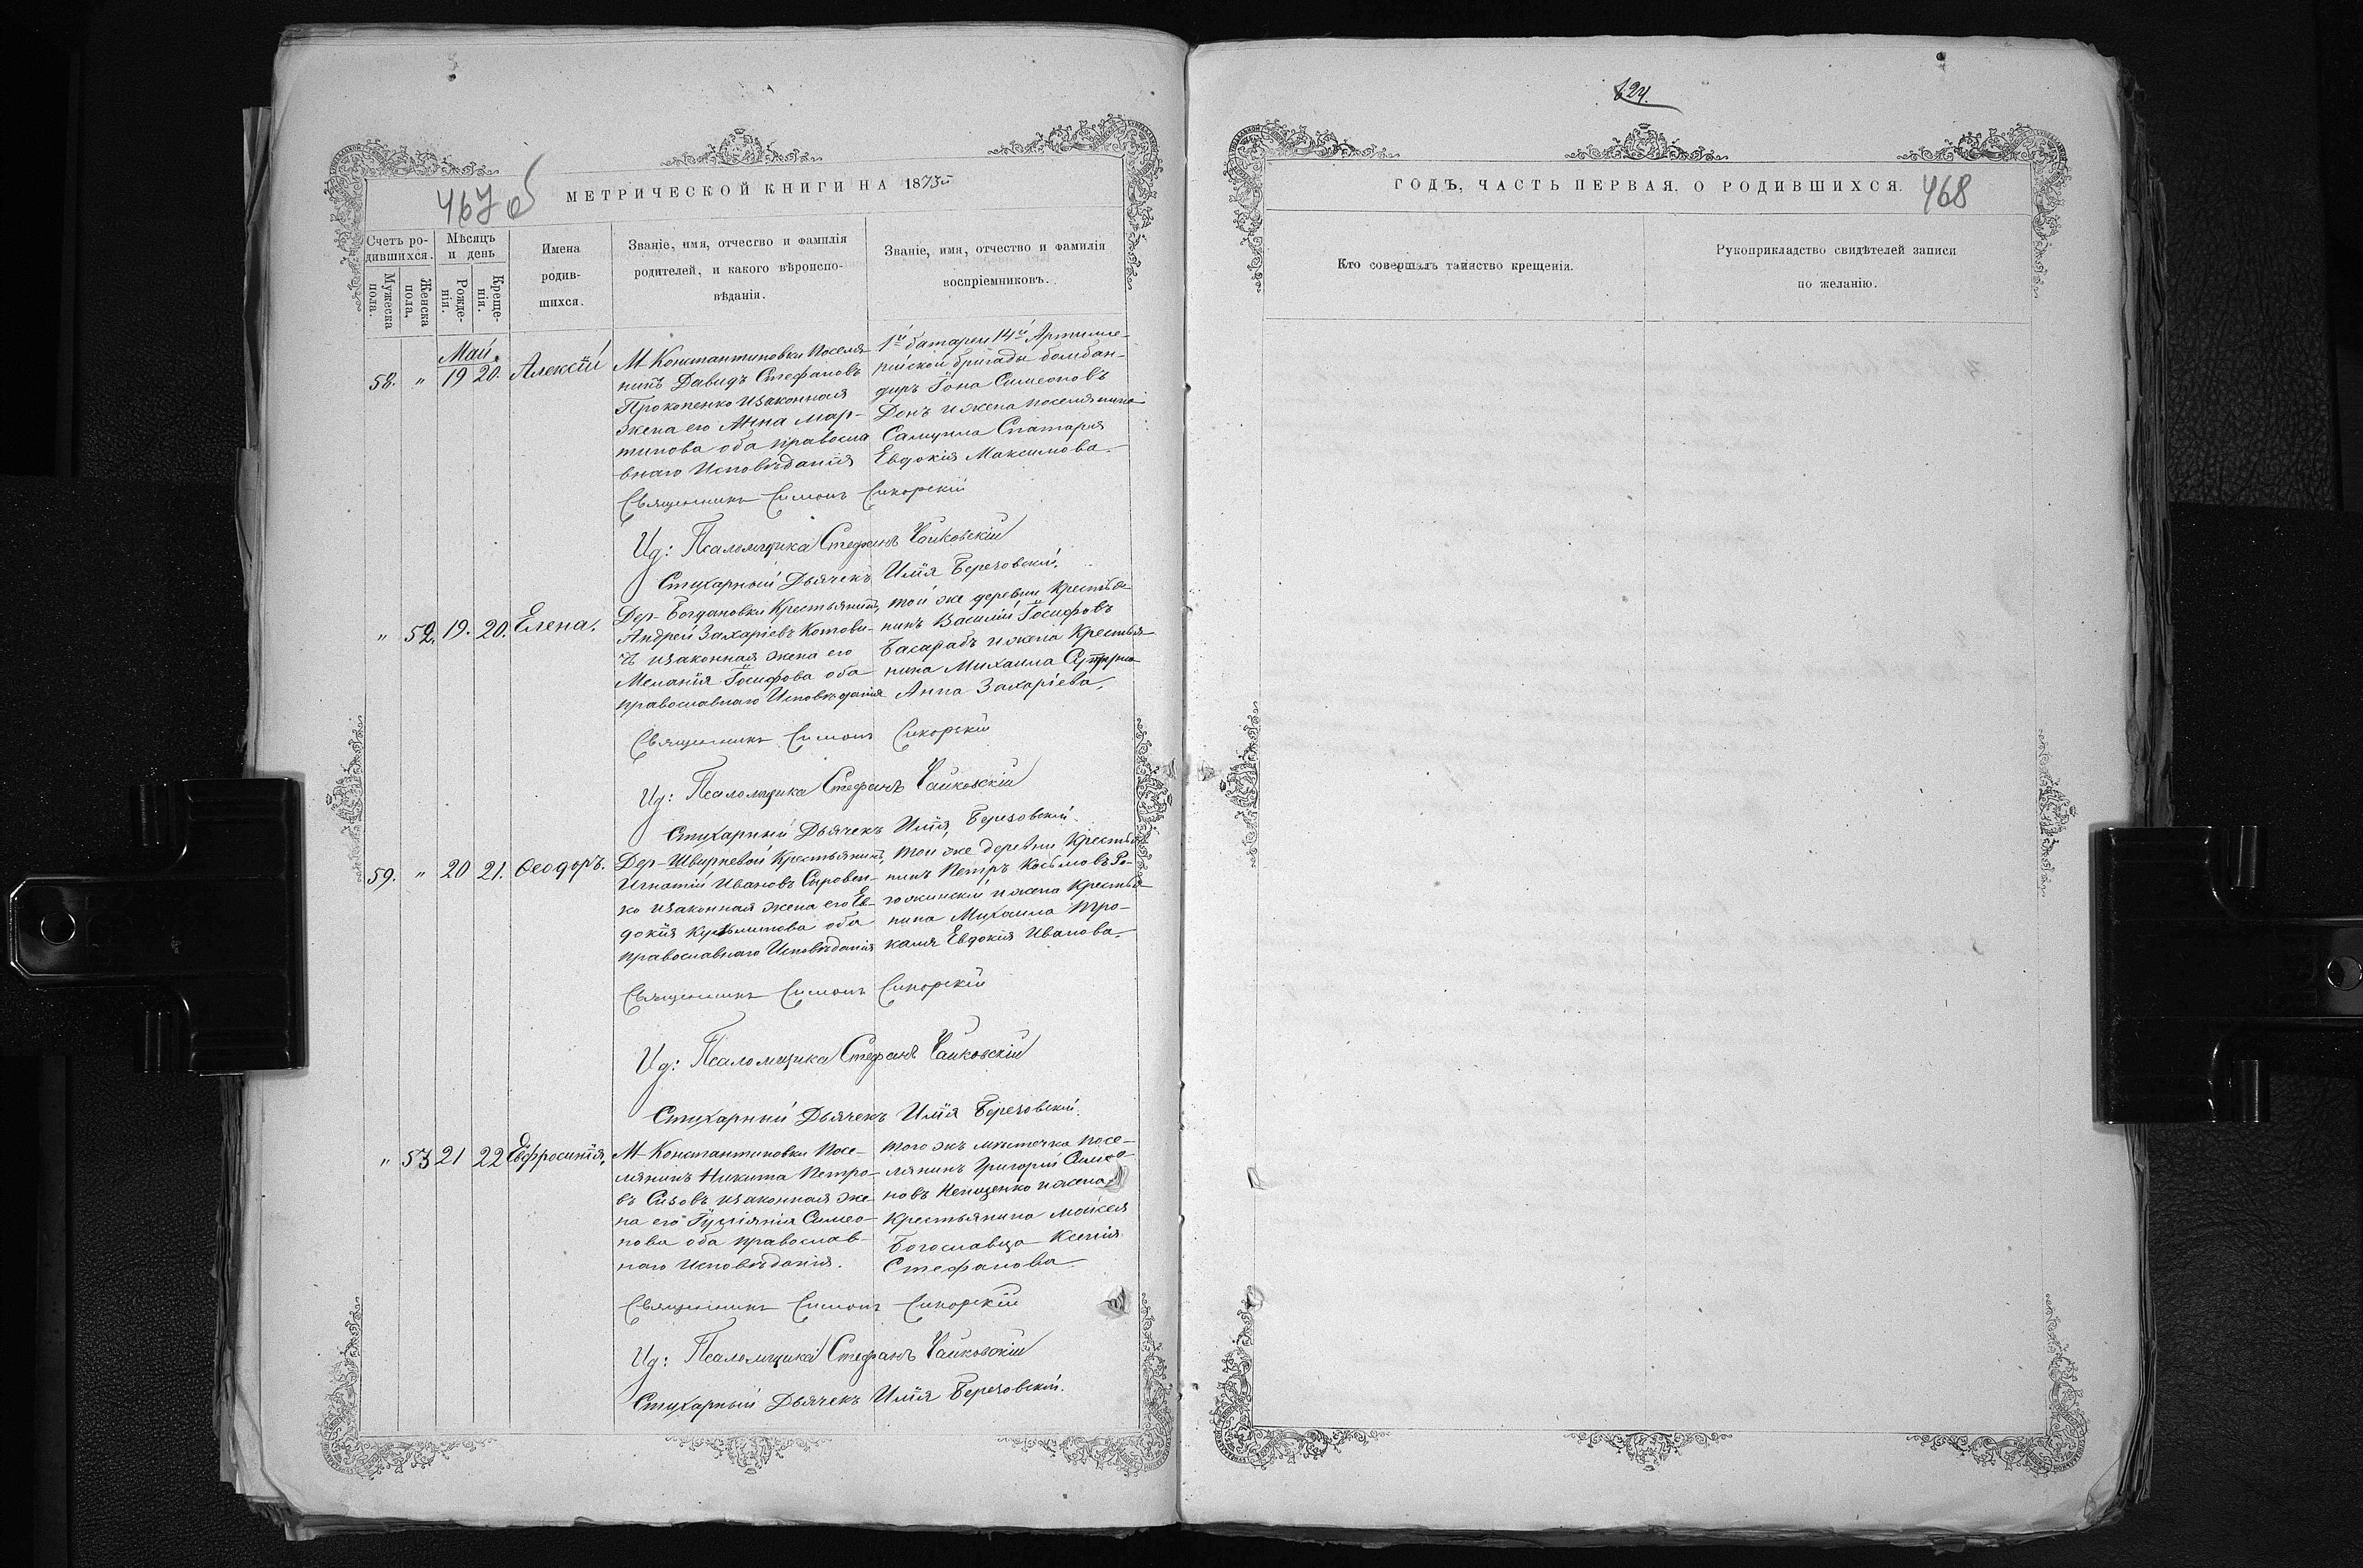 467 об
МЕТРИЧЕСКОЙ КНИГИ НА 1873й
Счетъ ро-
дившихся.
Мужеска
пола.
Женска
пола.
Мѣсяцъ
и день
Рожде-
нія.
Креще-
нія.
Имена
родив-
шихся.
Званіе, имя, отчество и фамилія
родителей, и какого вѣроиспо-
вѣданія.
Званіе, имя, отчество и фамилія
воспріемниковъ.
Май.
58. „ 19 20. Алексій
М. Константиновки Поселя-
нинъ Давидъ Стефановъ
Прокопенко и законная
жена его Анна Мар-
тинова оба правосла
внаго Исповѣданія
1й батареи 14й Артилле-
рійской бригады бомбан-
диръ Іона Симеоновъ
Донъ и жена поселянина
Самуила Спатаря
Евдокія Максимова.
Священникъ Симонъ Сикорскій
Ид: Псаломщика Стефанъ Чайковскій
Стихарный Дьячекъ Илія Березовскій.
„ 52. 19. 20. Елена.
Дер. Богдановки Крестьянинъ
Андрей Захаріевъ Котови-
чъ и законная жена его
Меланія Іосифова оба
православнаго Исповѣданія
той же деревни Крестья
нинъ Василій Іосифовъ
Басарабъ и жена Крестья
нина Михаила
Анна Захаріева.
Священникъ Симонъ Сикорскій
Ид: Псаломщика Стефанъ Чайковскій
Стихарный Дьячекъ Илія Березовскій.
59. „ 20 21. Ѳеодоръ.
Дер. Швырневой Крестьянинъ
Игнатій Ивановъ Сыровен-
ко и законная жена его Ев-
докія Кузьминова оба
православнаго Исповѣданія
той же деревни Крестья
нинъ Петръ Косьмовъ Ро-
гожинскій и жена Крестья
нина Михаила Тро-
каля Евдокія Иванова.
Священникъ Симонъ Сикорскій
Ид: Псаломщика Стефанъ Чайковскій
Стихарный Дьячекъ Илія Березовскій.
„ 53 21 22 Евфросинія.
М. Константиновки Посе-
лянинъ Никита Петро-
въ Сизовъ и законная же
на его Іуліянія Симео-
нова оба православ-
наго Исповѣданія.
того жъ мѣстечка посе-
лянинъ Григорій Симео-
новъ Непищенко и жена
Крестьянина Моисея
Богославца Ксенія
Стефанова
Священникъ Симонъ Сикорскій
Ид: Псаломщика Стефанъ Чайковскій
Стихарный Дьячекъ Илія Березовскій.
624.
ГОДЪ, ЧАСТЬ ПЕРВАЯ, О РОДИВШИХСЯ.
468
Кто совершалъ таинство крещенія.
Рукоприкладство свидѣтелей записи
по желанію.